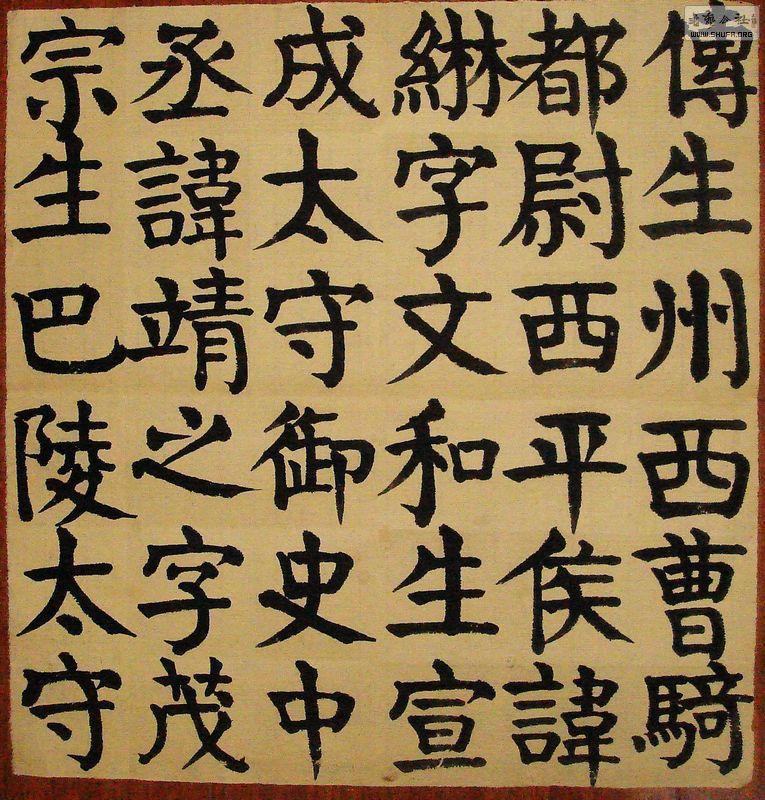 傳生州西曹騎
都尉西平侯諱
綝字文和生宣
成太守御史中
丞諱靖之字茂
宗生巴陵太守
WWW.SHUFA.ORG